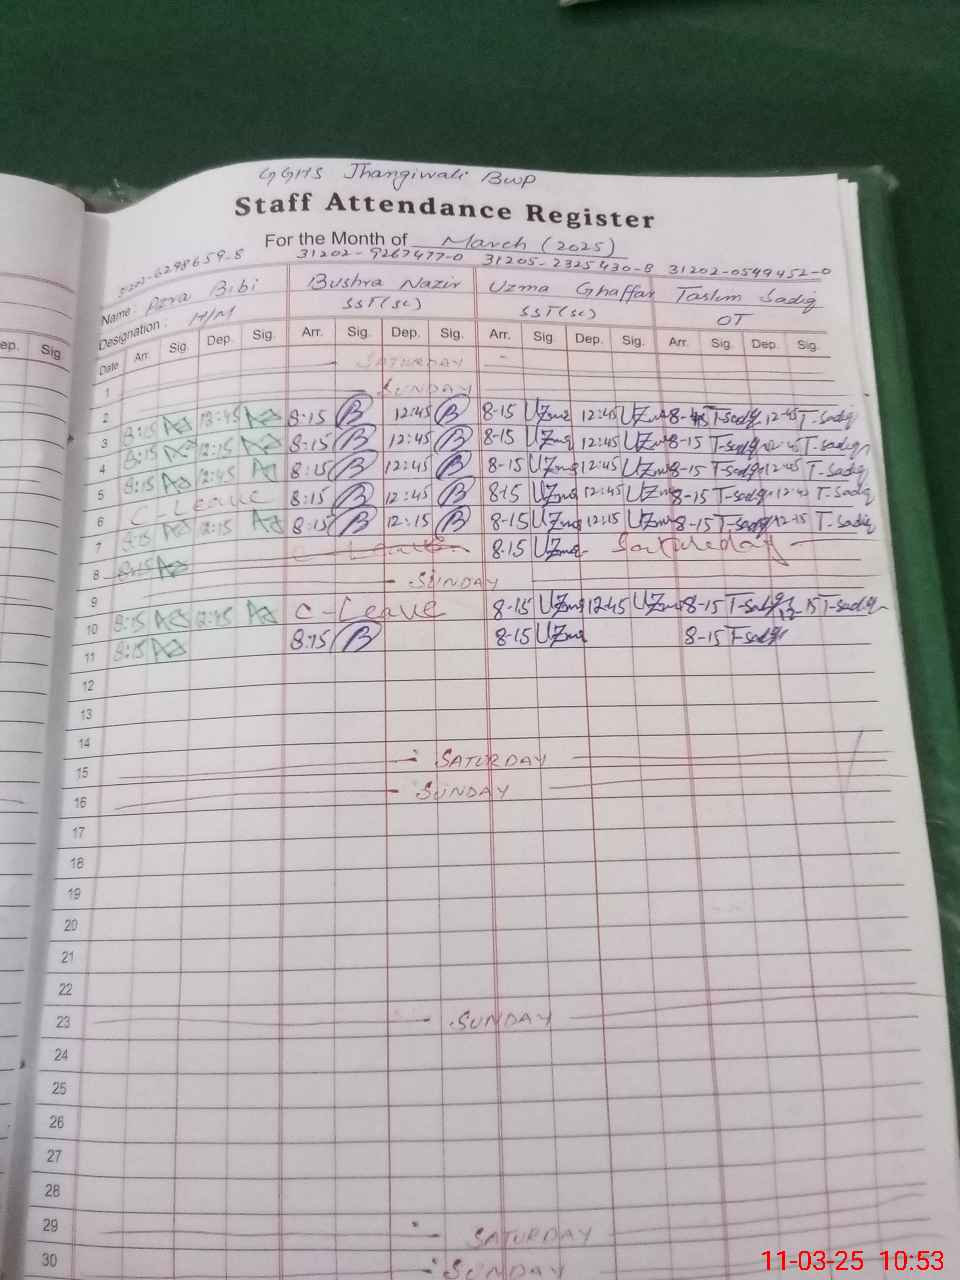 GGHS Jhangiwali Bwp
Staff Attendance Register
For the Month of March (2025)
31202-6298659-8 31202-9267477-0 31205-2325430-8 31202-0549452-0
Name: Azra Bibi Bushra Nazir Uzma Ghaffar Taslim Sadiq
Designation: H/M SST(SC) SST(SC) OT
ep. Sig Date Arr. Sig. Dep. Sig. Arr. Sig. Dep. Sig. Arr. Sig. Dep. Sig. Arr. Sig. Dep. Sig.
1 SATURDAY
2 SUNDAY
3 8:15 12:45 8:15 B 12:45 B 8-15 Uzma 12:45 Uzma 8-15 T-Sadiq 12-45 T-Sadiq
4 8:15 12:15 8:15 B 12:45 B 8-15 Uzma 12:45 Uzma 8-15 T-Sadiq 12-45 T-Sadiq
5 8:15 12:45 8:15 B 12:45 B 8-15 Uzma 12:45 Uzma 8-15 T-Sadiq 12-45 T-Sadiq
6 C-Leave 8:15 B 12:45 B 8-15 Uzma 12:45 Uzma 8-15 T-Sadiq 12-45 T-Sadiq
7 8:15 12:15 8:15 B 12:15 B 8-15 Uzma 12:15 Uzma 8-15 T-Sadiq 12-15 T-Sadiq
8 8:15 8.15 Uzma Satureday
9 SUNDAY
10 8:15 12:45 C-Leave 8-15 Uzma 12:45 Uzma 8-15 T-Sadiq T-Sadiq
11 8:15 8:15 B 8-15 Uzma 8-15 T-Sadiq
12
13
14
15 SATURDAY
16 SUNDAY
17
18
19
20
21
22
23 SUNDAY
24
25
26
27
28
29 SATURDAY
30 SUNDAY
11-03-25 10:53